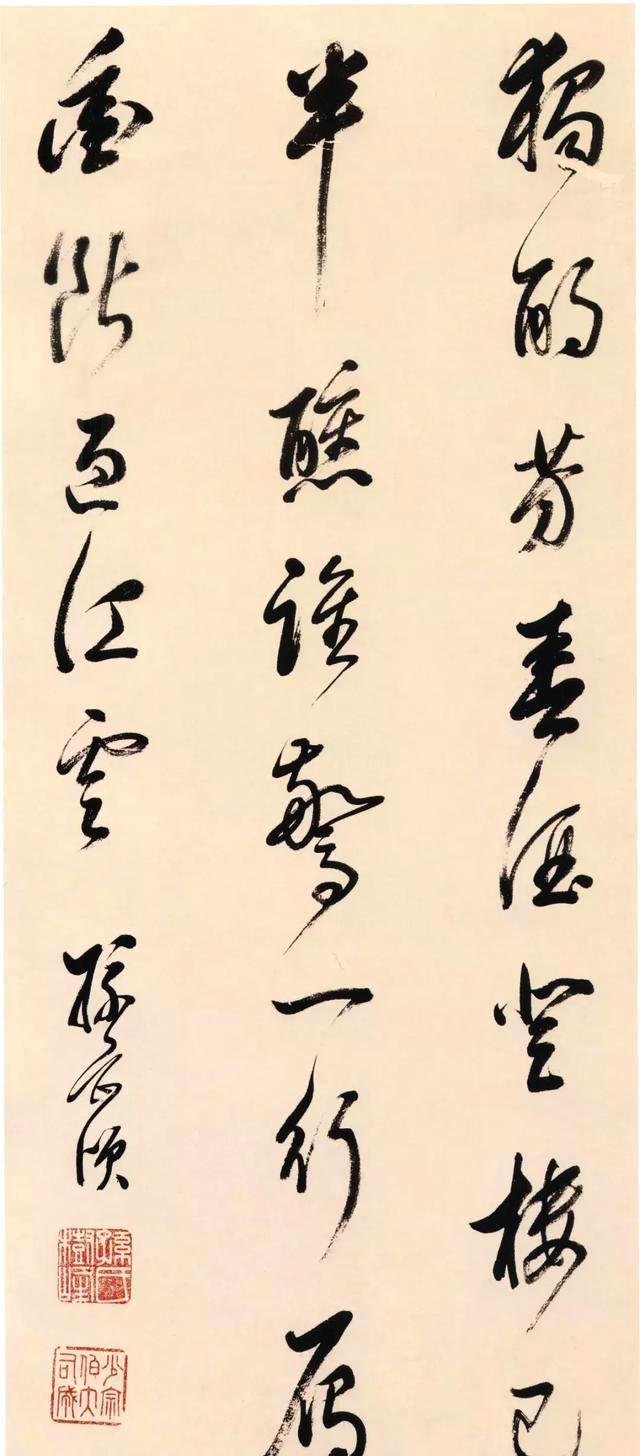 獨酌芳春酒登樓已
半醺誰驚一行雁
衝斷過江雲
孫岳頒
少宗伯大司成